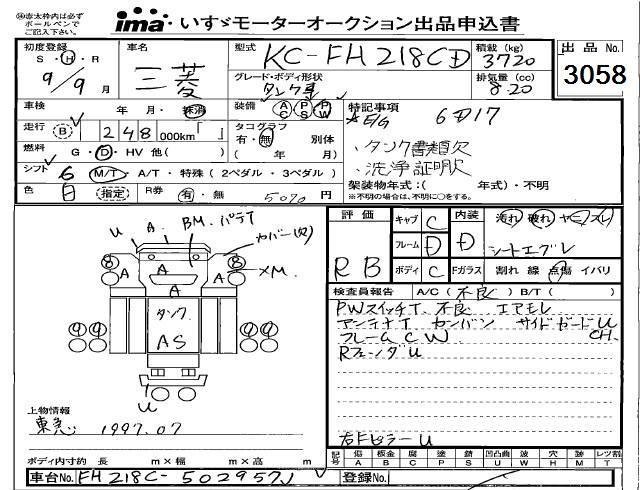 ㊟赤太枠内は必ず
ボールペンで
ご記入下さい。
ima・いすゞモーターオークション出品申込書
初度登録 車名 型式 KC-FH218CD 積載(kg) 3720 出品No. 3058
S・H・R
9年/9月 三菱 グレード・ボディ形状 タンク車 排気量(cc) 8.20
車検 年・月・抹消 装備 AC PS PW 特記事項 6D17
走行 B 248 000km「 」 タコグラフ 有・無 別体 *E/G
( 年 月) ・タンク書類欠
燃料 G・D・HV 他( )
・洗浄証明欠
シフト 6 M/T・A/T・特殊(2ペダル・3ペダル) 架装物年式:( 年式)・不明
※不明の場合は、不明に○をする。
色 白 (指定) R券 有・無 5070円
評価 キャブ C 内装 汚れ 破れ ヤニ スレ
R B フレーム D D シートエグレ
ボディ C Fガラス 割れ 線 点傷 イバリ
検査員報告 A/C(不良) B/T( )
PWスイッチT 不良 エアモレ
アンテナT センバン サイドガードU
フレームCW CH.
RフェンダU
右FピラーU
U A BM.パテA カバー(欠)
⑧ A A A ⑧ XM.
A
タンク
AS
⑨⑨ ⑨⑨
U
上物情報
東急 1997.07
ボディ内寸 約 長 m×幅 m×高 m
記号 傷 A 板金 B 腐 C 塗 P 錆 S 凹凸曲 U 波 W 穴 H 跡 M レツ割 T
車台No. FH218C-502957 登録No.